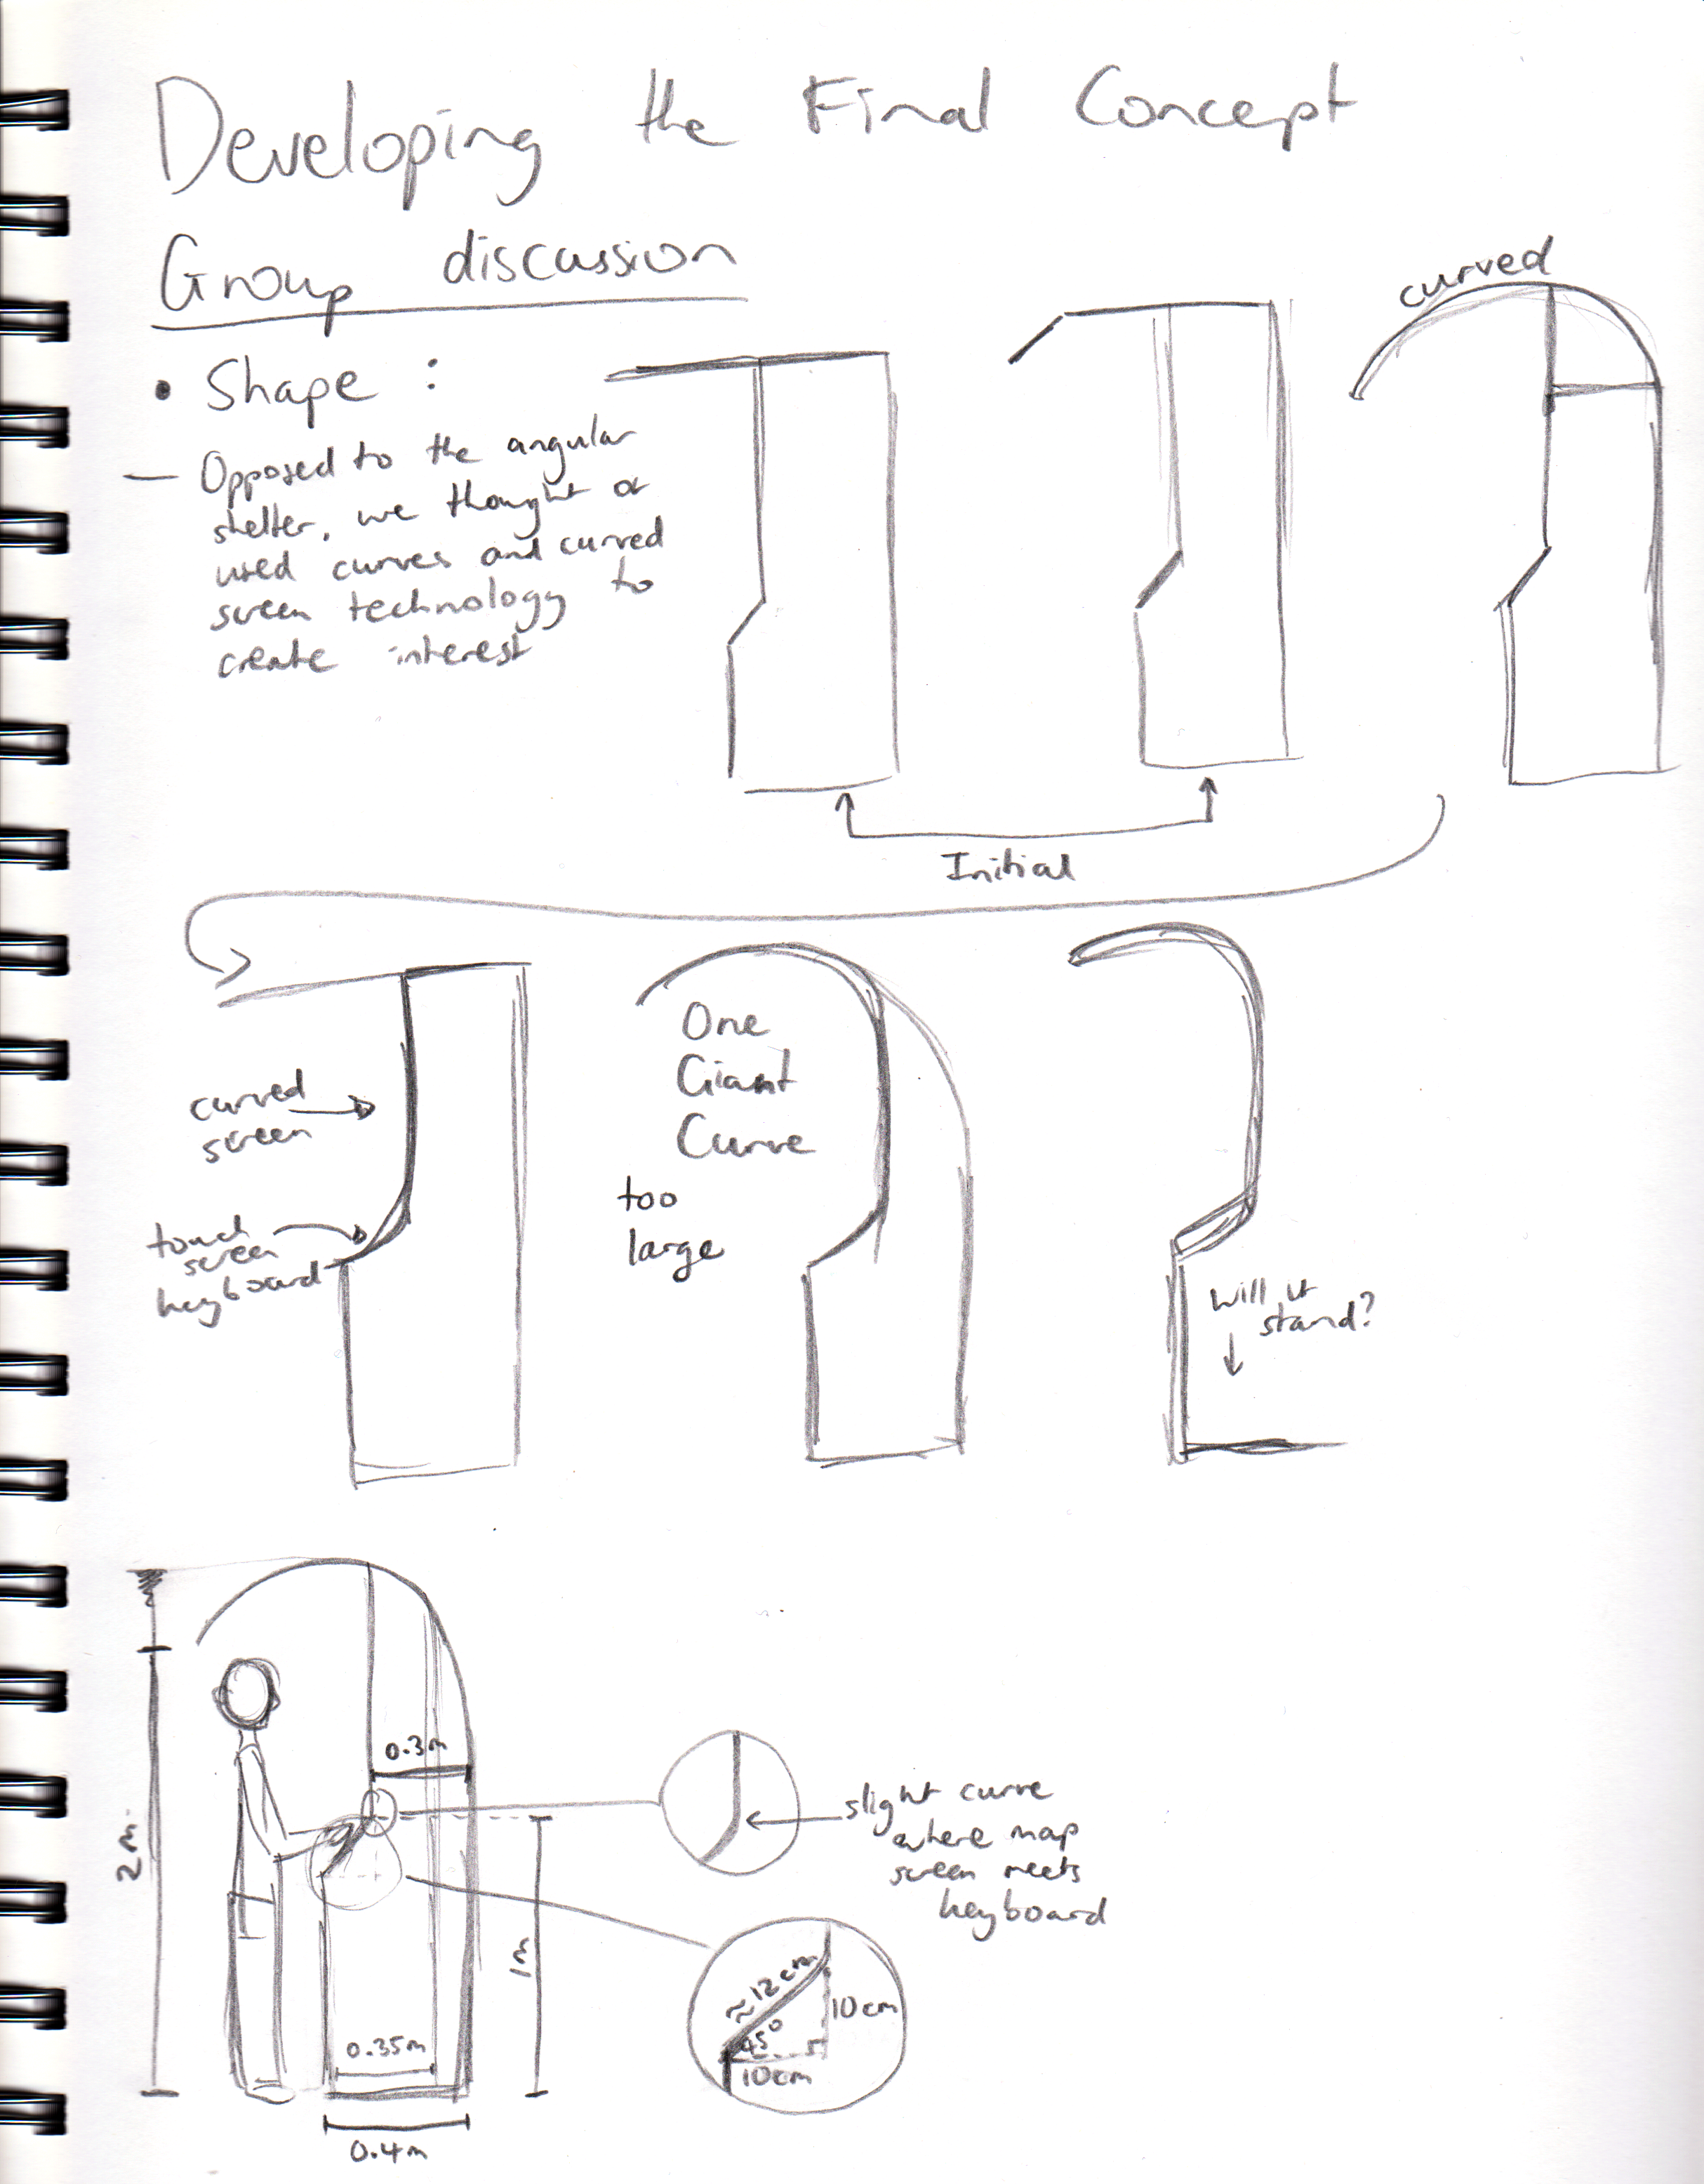 Developing the Final Concept
Group discussion
• Shape :
— Opposed to the angular
shelter, we thought of
used curves and curved
screen technology to
create interest
curved
Initial
curved
screen
touch
screen
keyboard
One
Giant
Curve
too
large
will it
stand?
2m.
0.3m
1m
0.35m
0.4m
slight curve
where map
screen meets
keyboard
≈12cm
10cm
45°
10cm